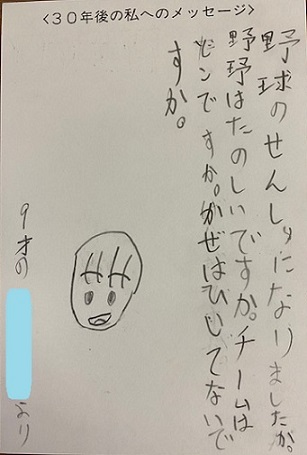 <30年後の私へのメッセージ>
野球のせんしゅになりましたか。
野球はたのしいですか。チームは
どこですか。かぜはひいてないで
すか。
9才の
より